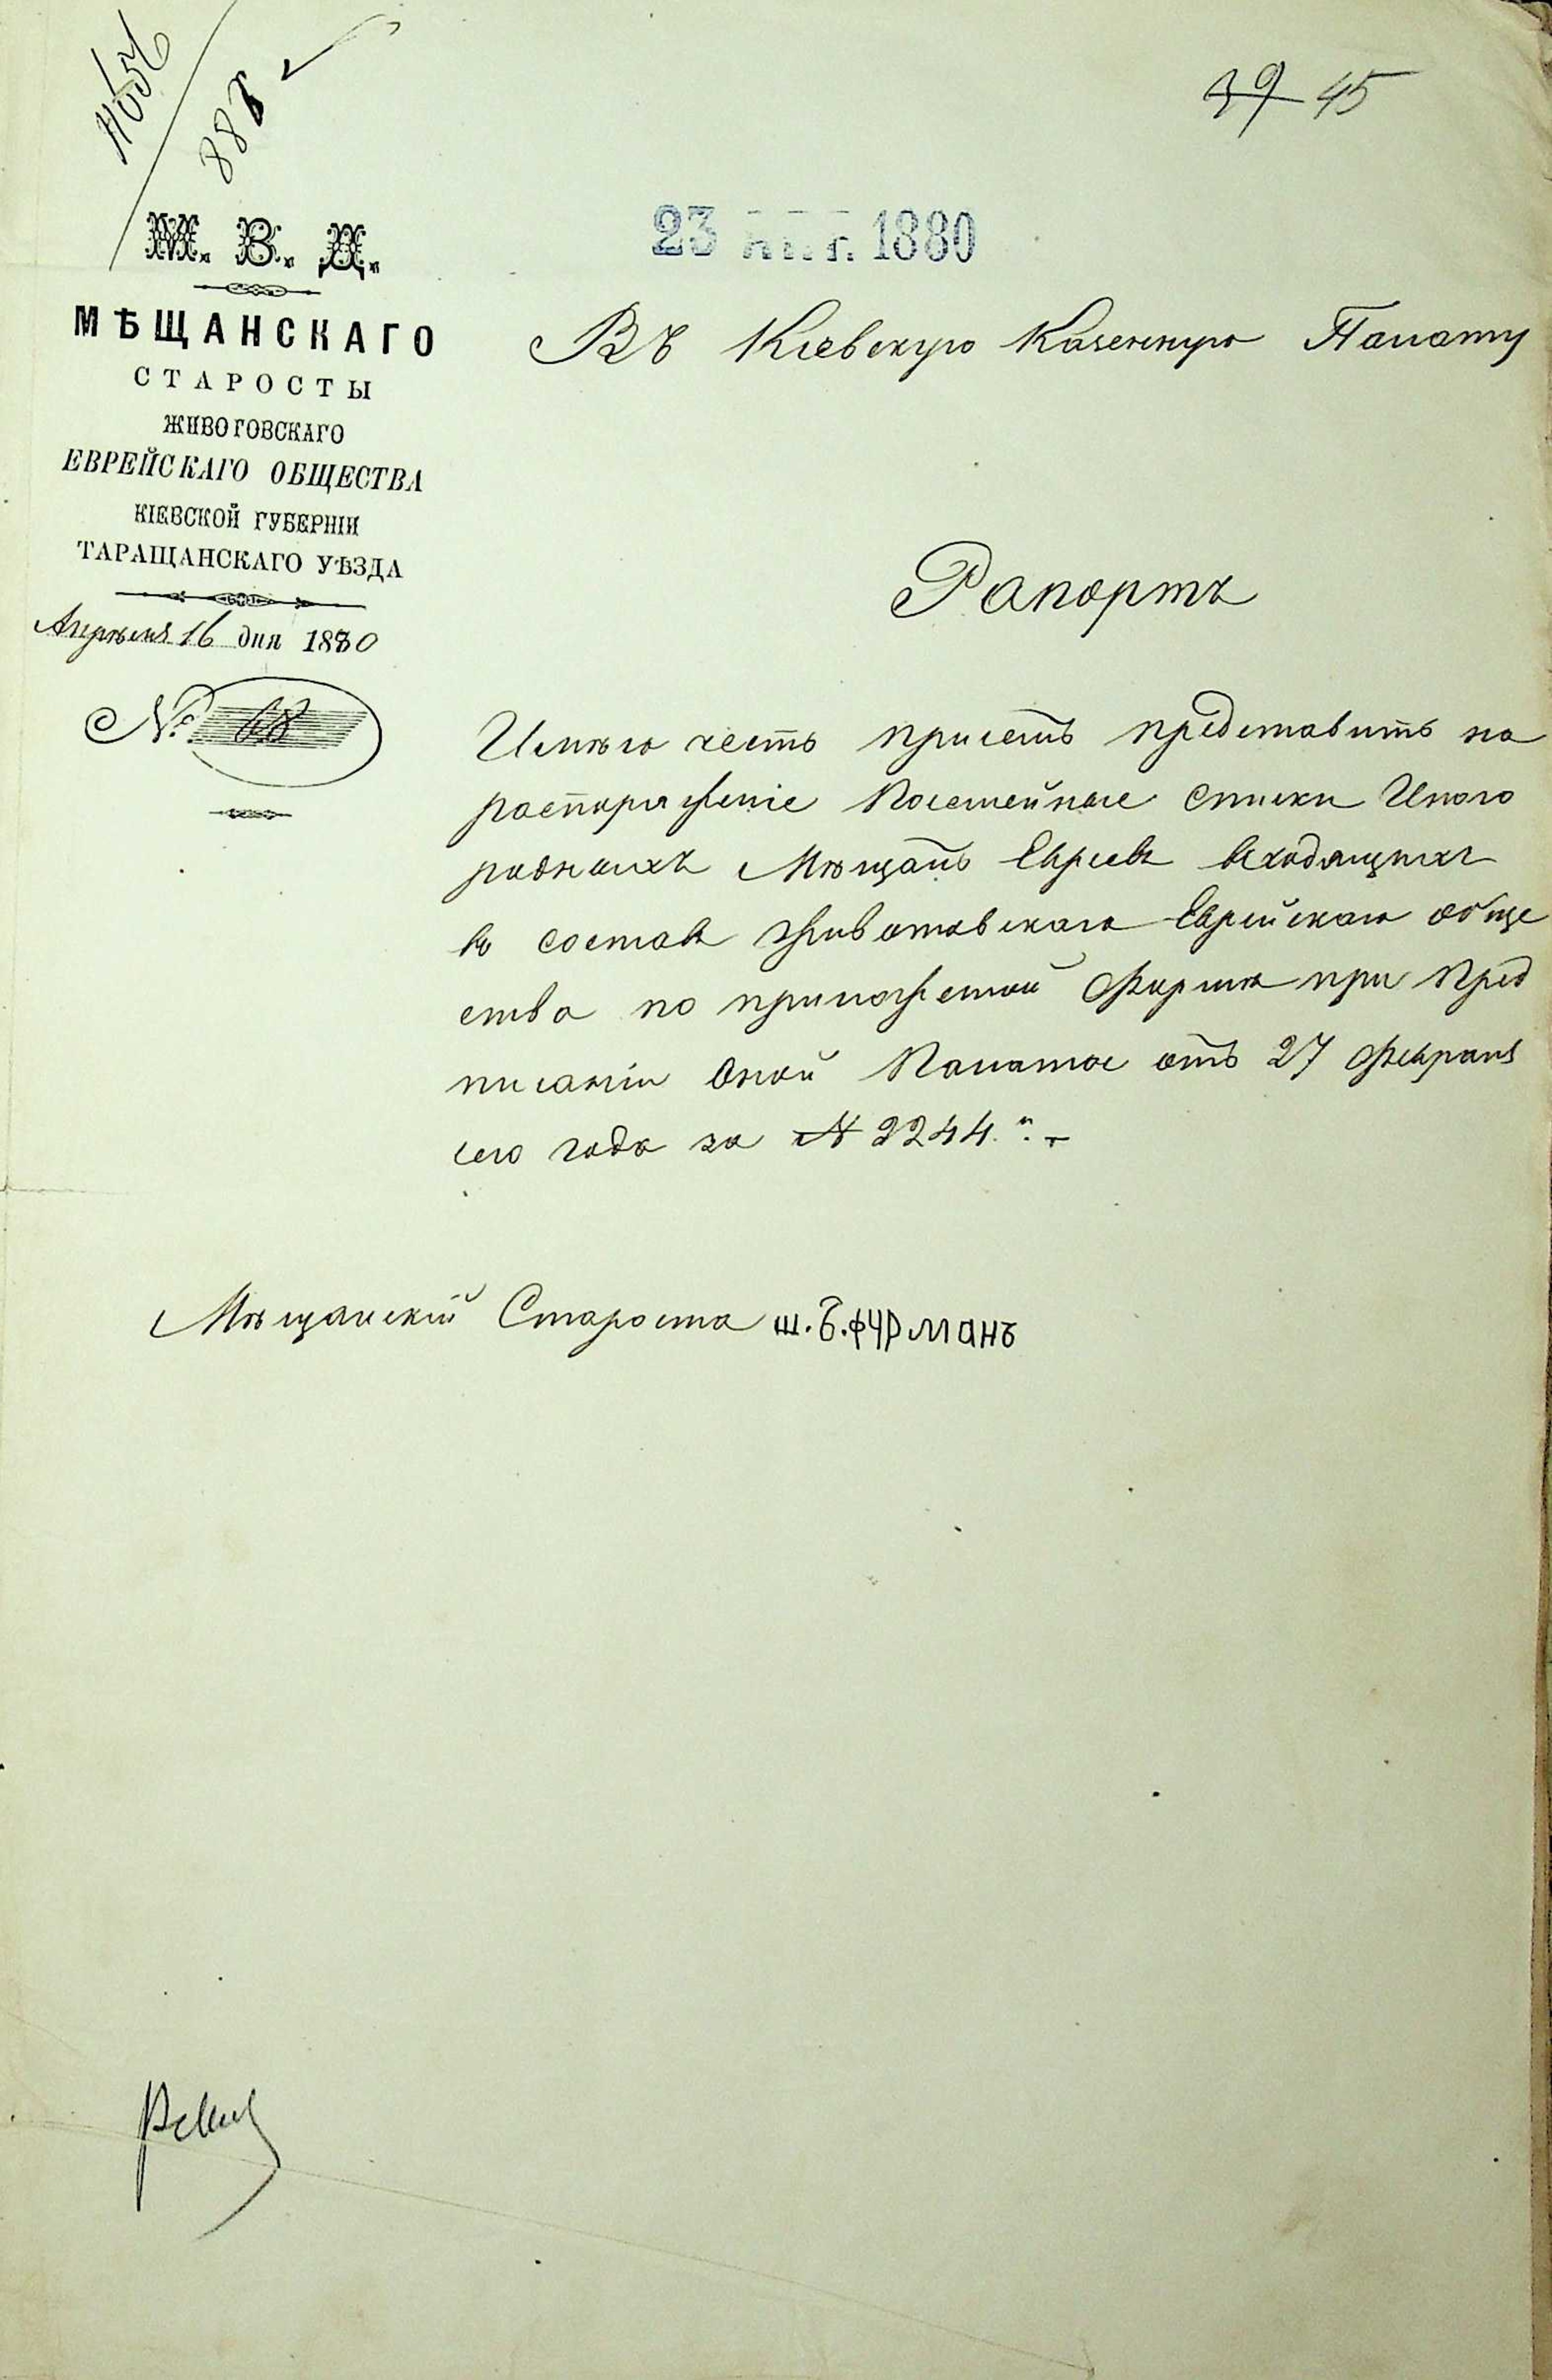 39 45
М. В. Д.
МѢЩАНСКАГО
СТАРОСТЫ
ЖИВОГОВСКАГО
ЕВРЕЙСКАГО ОБЩЕСТВА
КІЕВСКОЙ ГУБЕРНІИ
ТАРАЩАНСКАГО УѢЗДА
Апрѣля 16 дня 1880
№ 68
23 АПР. 1880
Въ Кіевскую Казенную Палату
Рапортъ
Имѣю честь при семъ представить на
распоряженіе Посемейные списки Иного
родныхъ Мѣщанъ Евреевъ входящихъ
въ составъ Животовскаго Еврейскаго обще
ства по приложеной Формѣ при Пред
писаніи Оной Палаты отъ 27 Февраля
сего года за № 2244.
Мѣщанскій Староста Ш. Б. Фурманъ